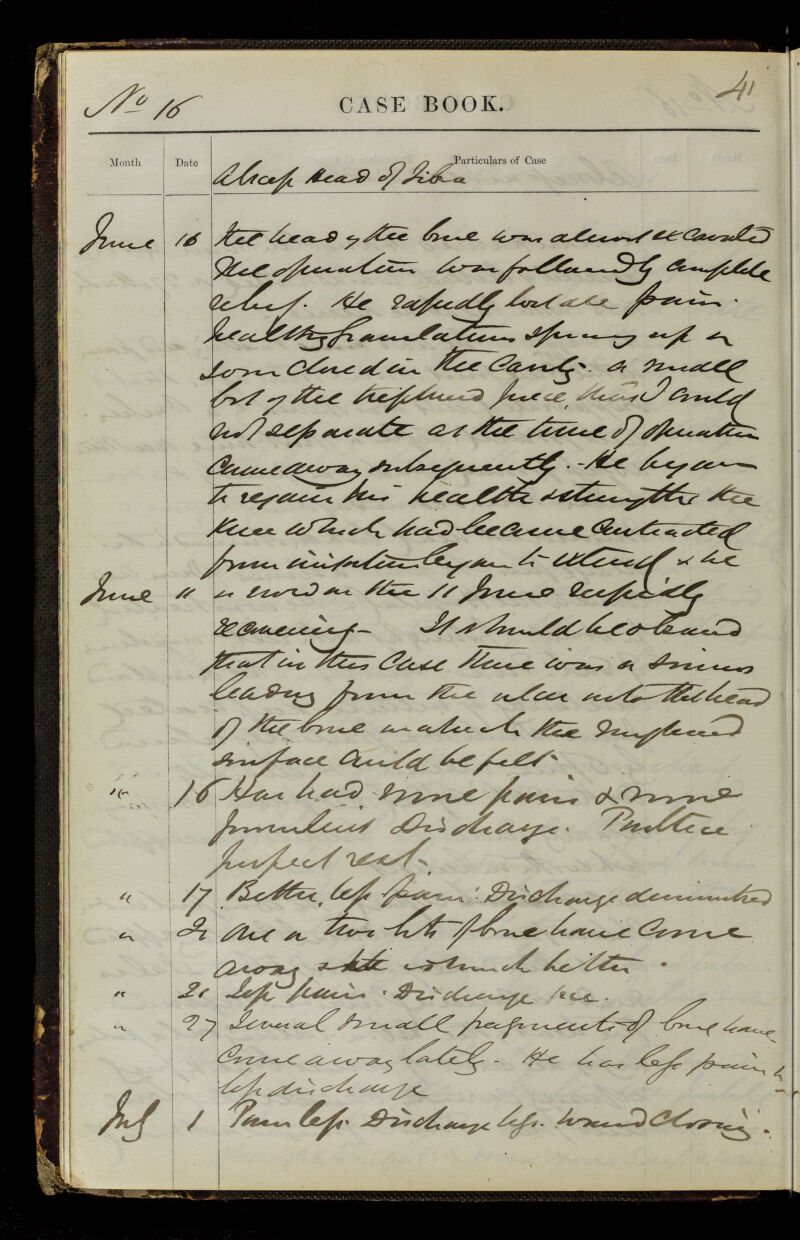 No 16 CASE BOOK. 41
Month Date Particulars of Case
Abscess Head of Tibia
June 16 the head of the bone was almost excavated
The operation was followed by complete
relief. He rapidly lost all pain.
healthy granulations sprung up &
soon closed in the cavity. a small
bit of the trephined piece that I could
not separate at the time of operation
came away subsequently. - He began
to regain his health & strength & the
knee which had become contracted
from began to extend & he
June 11 is now on the 11 June rapidly
recovering - It should be observed
that in this case there was a sinus
leading from the ulcer into the head
of the bone in which the
surface could be felt -
" 16 Has had some pain & some
purulent Discharge. Poultice
perfect rest -
" 17 Better, less pain. Discharge diminished
" 20 One or two bits of bone have come
away & is much better.
" 21 Less pain. Discharge less.
" 27 Several small fragments of bone have
come away lately - He has less pain &
less discharge
July 1 Pain less. Discharge less. wound closing.